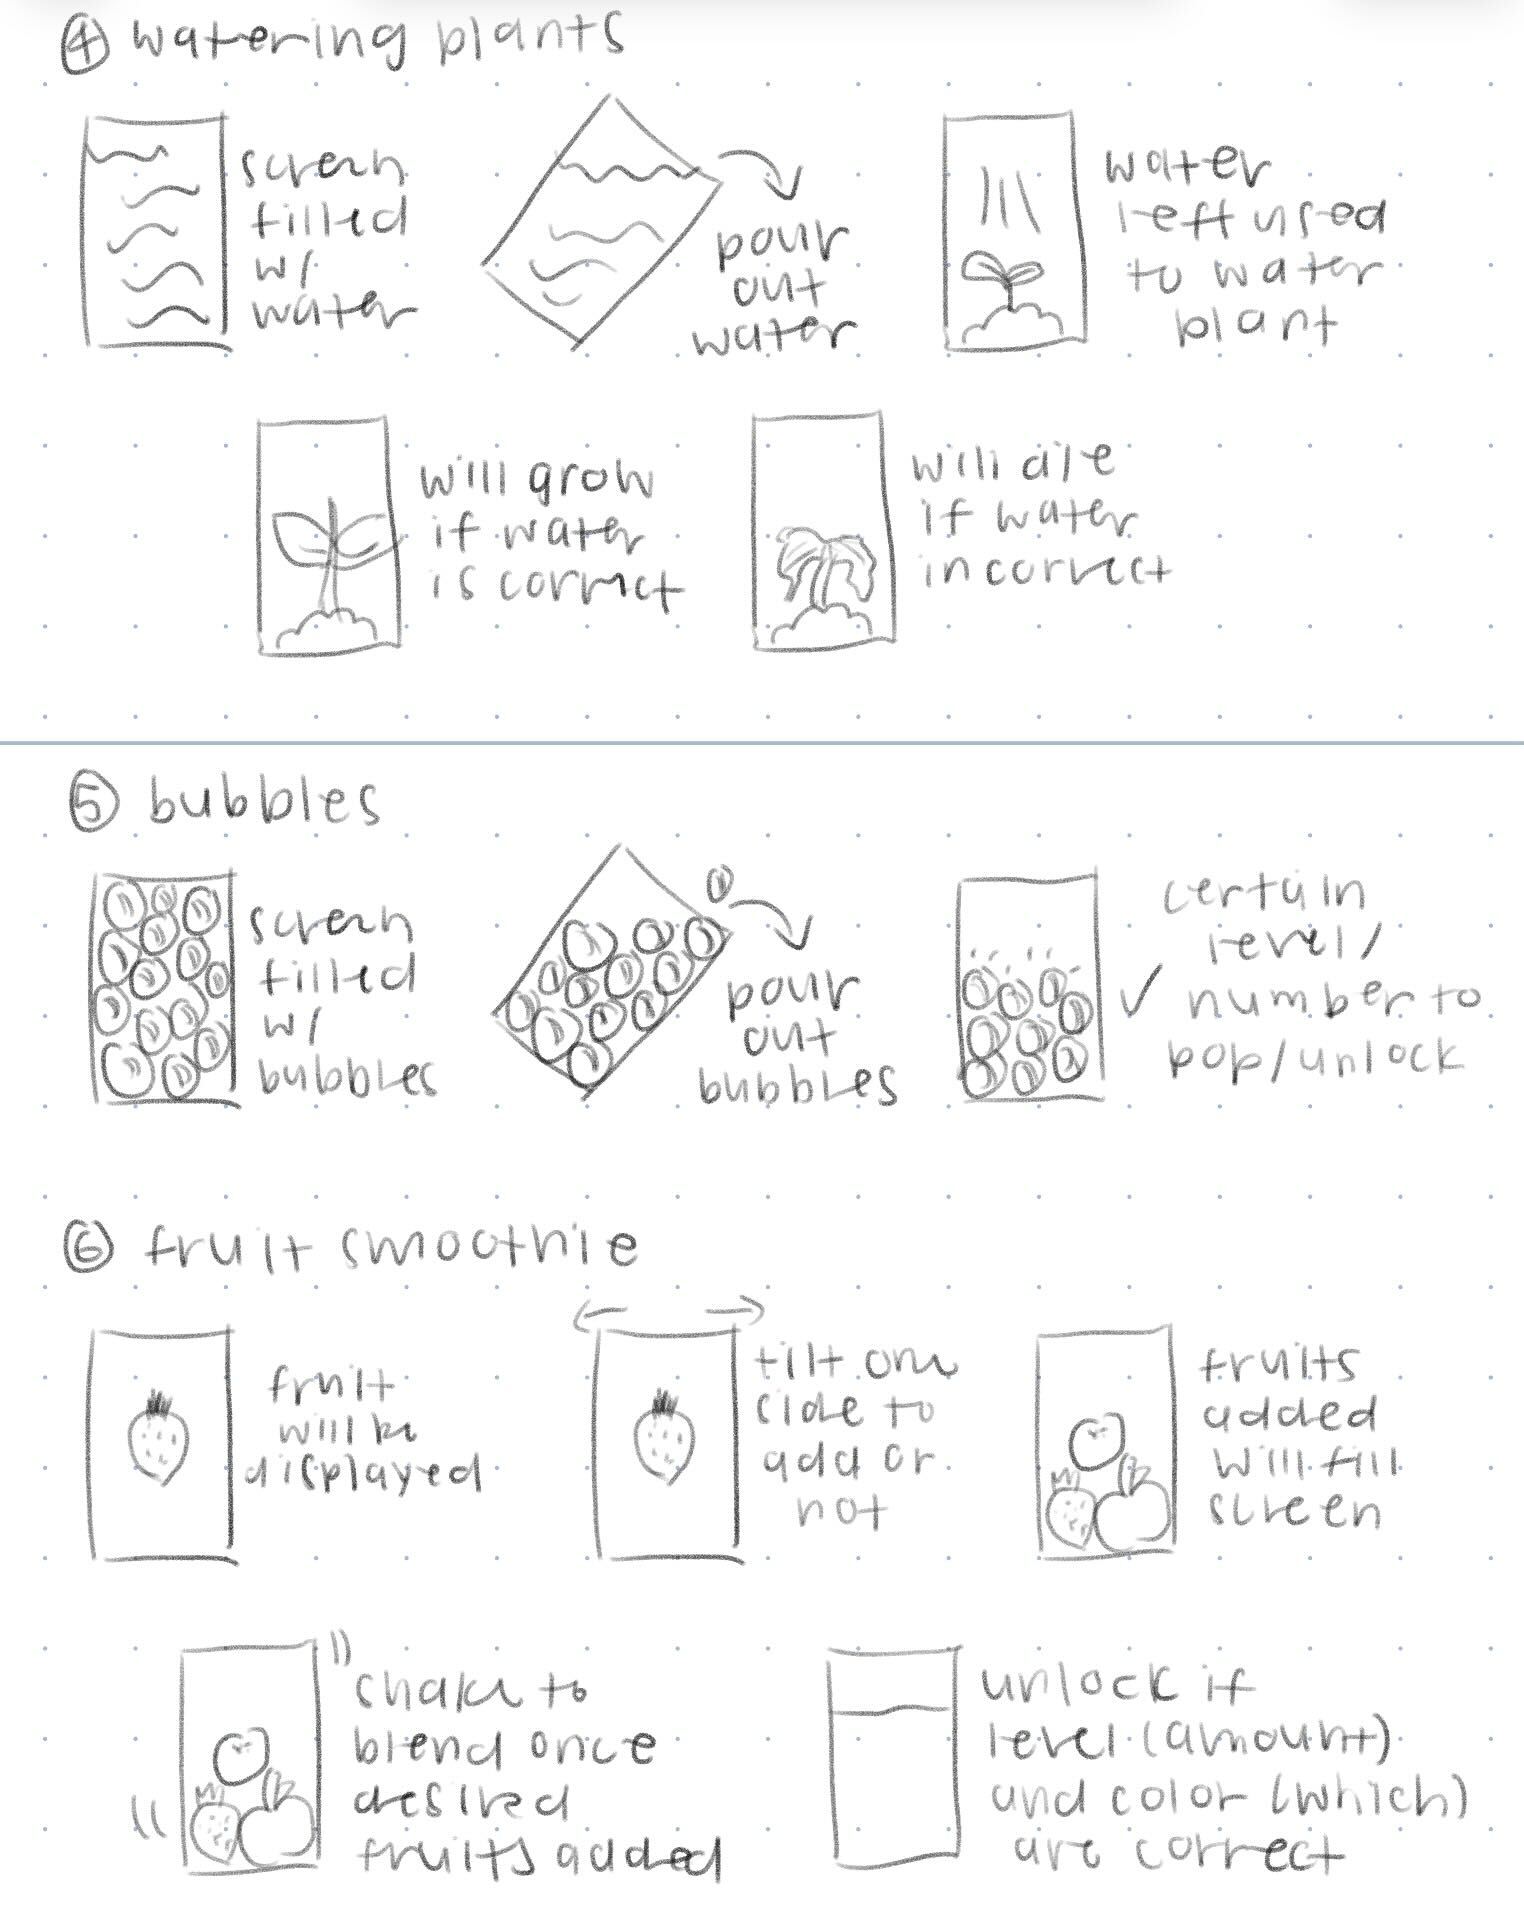 ④ watering plants
screen
filled
w/
water
pour
out
water
water
left used
to water
plant
will grow
if water
is correct
will die
if water
incorrect
⑤ bubbles
screen
filled
w/
bubbles
pour
out
bubbles
certain
level/
✓ number to
pop/unlock
⑥ fruit smoothie
fruit
will be
displayed
tilt one
side to
add or
not
fruits
added
will fill
screen
shake to
blend once
desired
fruits added
unlock if
level (amount)
and color (which)
are correct